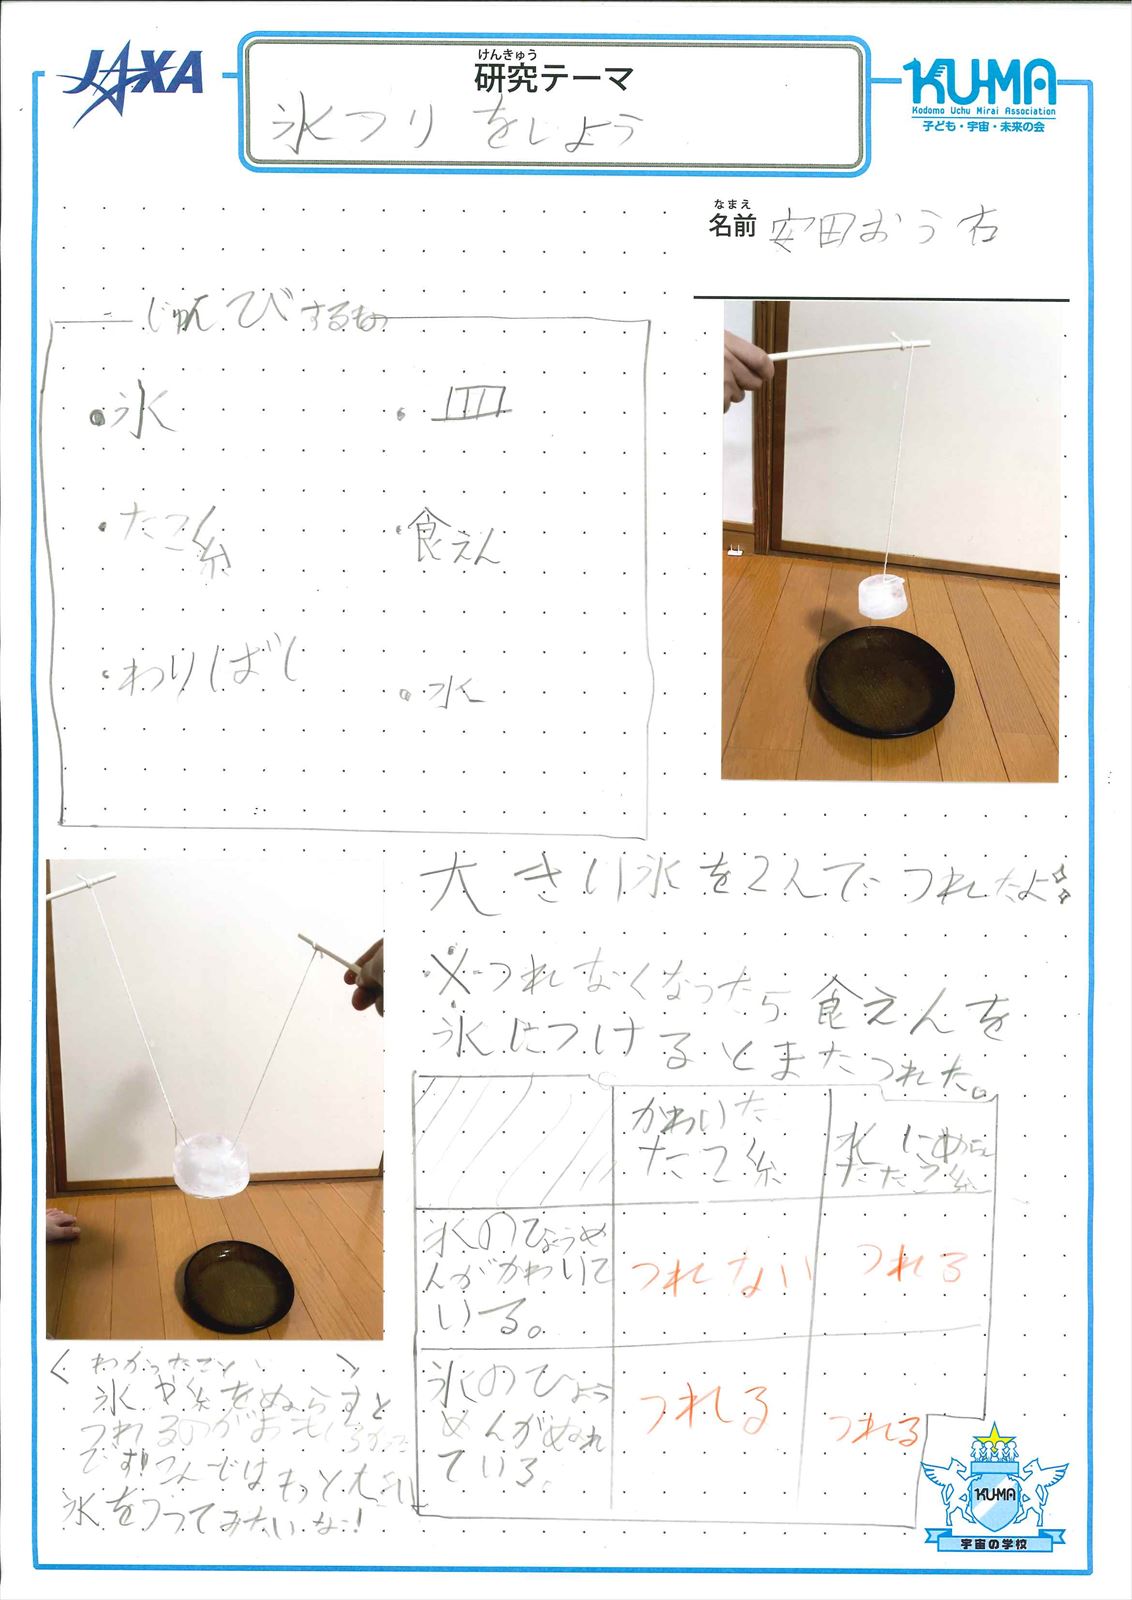 JAXA
けんきゅう
研究テーマ
氷つりをしよう
KU-MA
Kodomo Uchu Mirai Association
子ども・宇宙・未来の会
なまえ
名前 安田おう右
じゅんびするもの
・氷
・皿
・たこ糸
・食えん
・わりばし
・水
大きい氷を2人でつれたよ
※つれなくなったら食えんを
氷につけるとまたつれた。
かわいた
たこ糸
水にぬらし
たたこ糸
氷のひょうめ
んがかわいて
いる。
つれない
つれる
氷のひょう
めんがぬれ
ている。
つれる
つれる
<わかったこと>
氷や糸をぬらすと
つれるのがおもしろかった
です!こんどはもっと大きい
氷をつってみたいな!
KU-MA
宇宙の学校